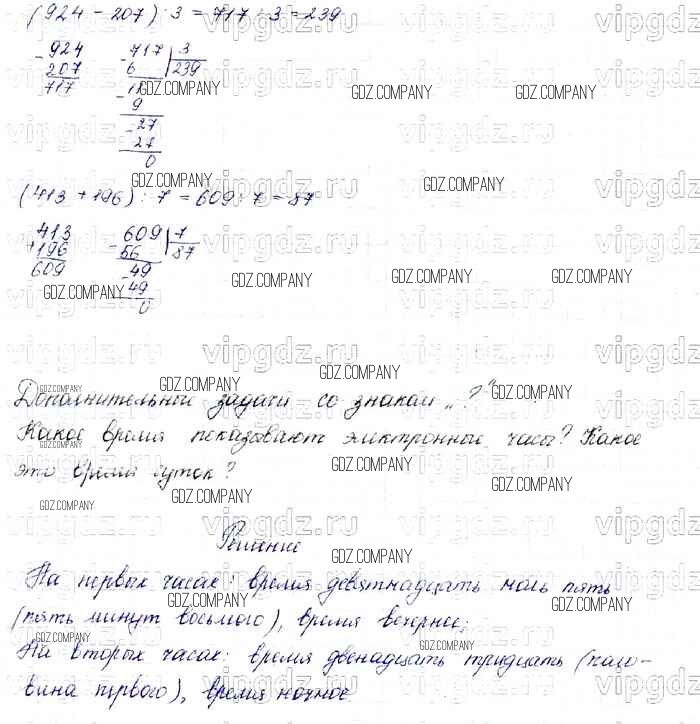 (924 - 207) : 3 = 717 : 3 = 239
924 717 3
207 6 239
717 11
9
27
27
0
(413 + 196) : 7 = 609 : 7 = 87
413 609 7
+196 56 87
609 49
49
0
Дополнительный задачи со знаком „?"
Какое время показывают электронные часы? Какое
это время суток?
Решение
На первых часах: время девятнадцать ноль пять
(пять минут восьмого), время вечернее;
На вторых часах: время двенадцать тридцать (поло-
вина первого), время ночное.
vipgdz.ru
GDZ.COMPANY